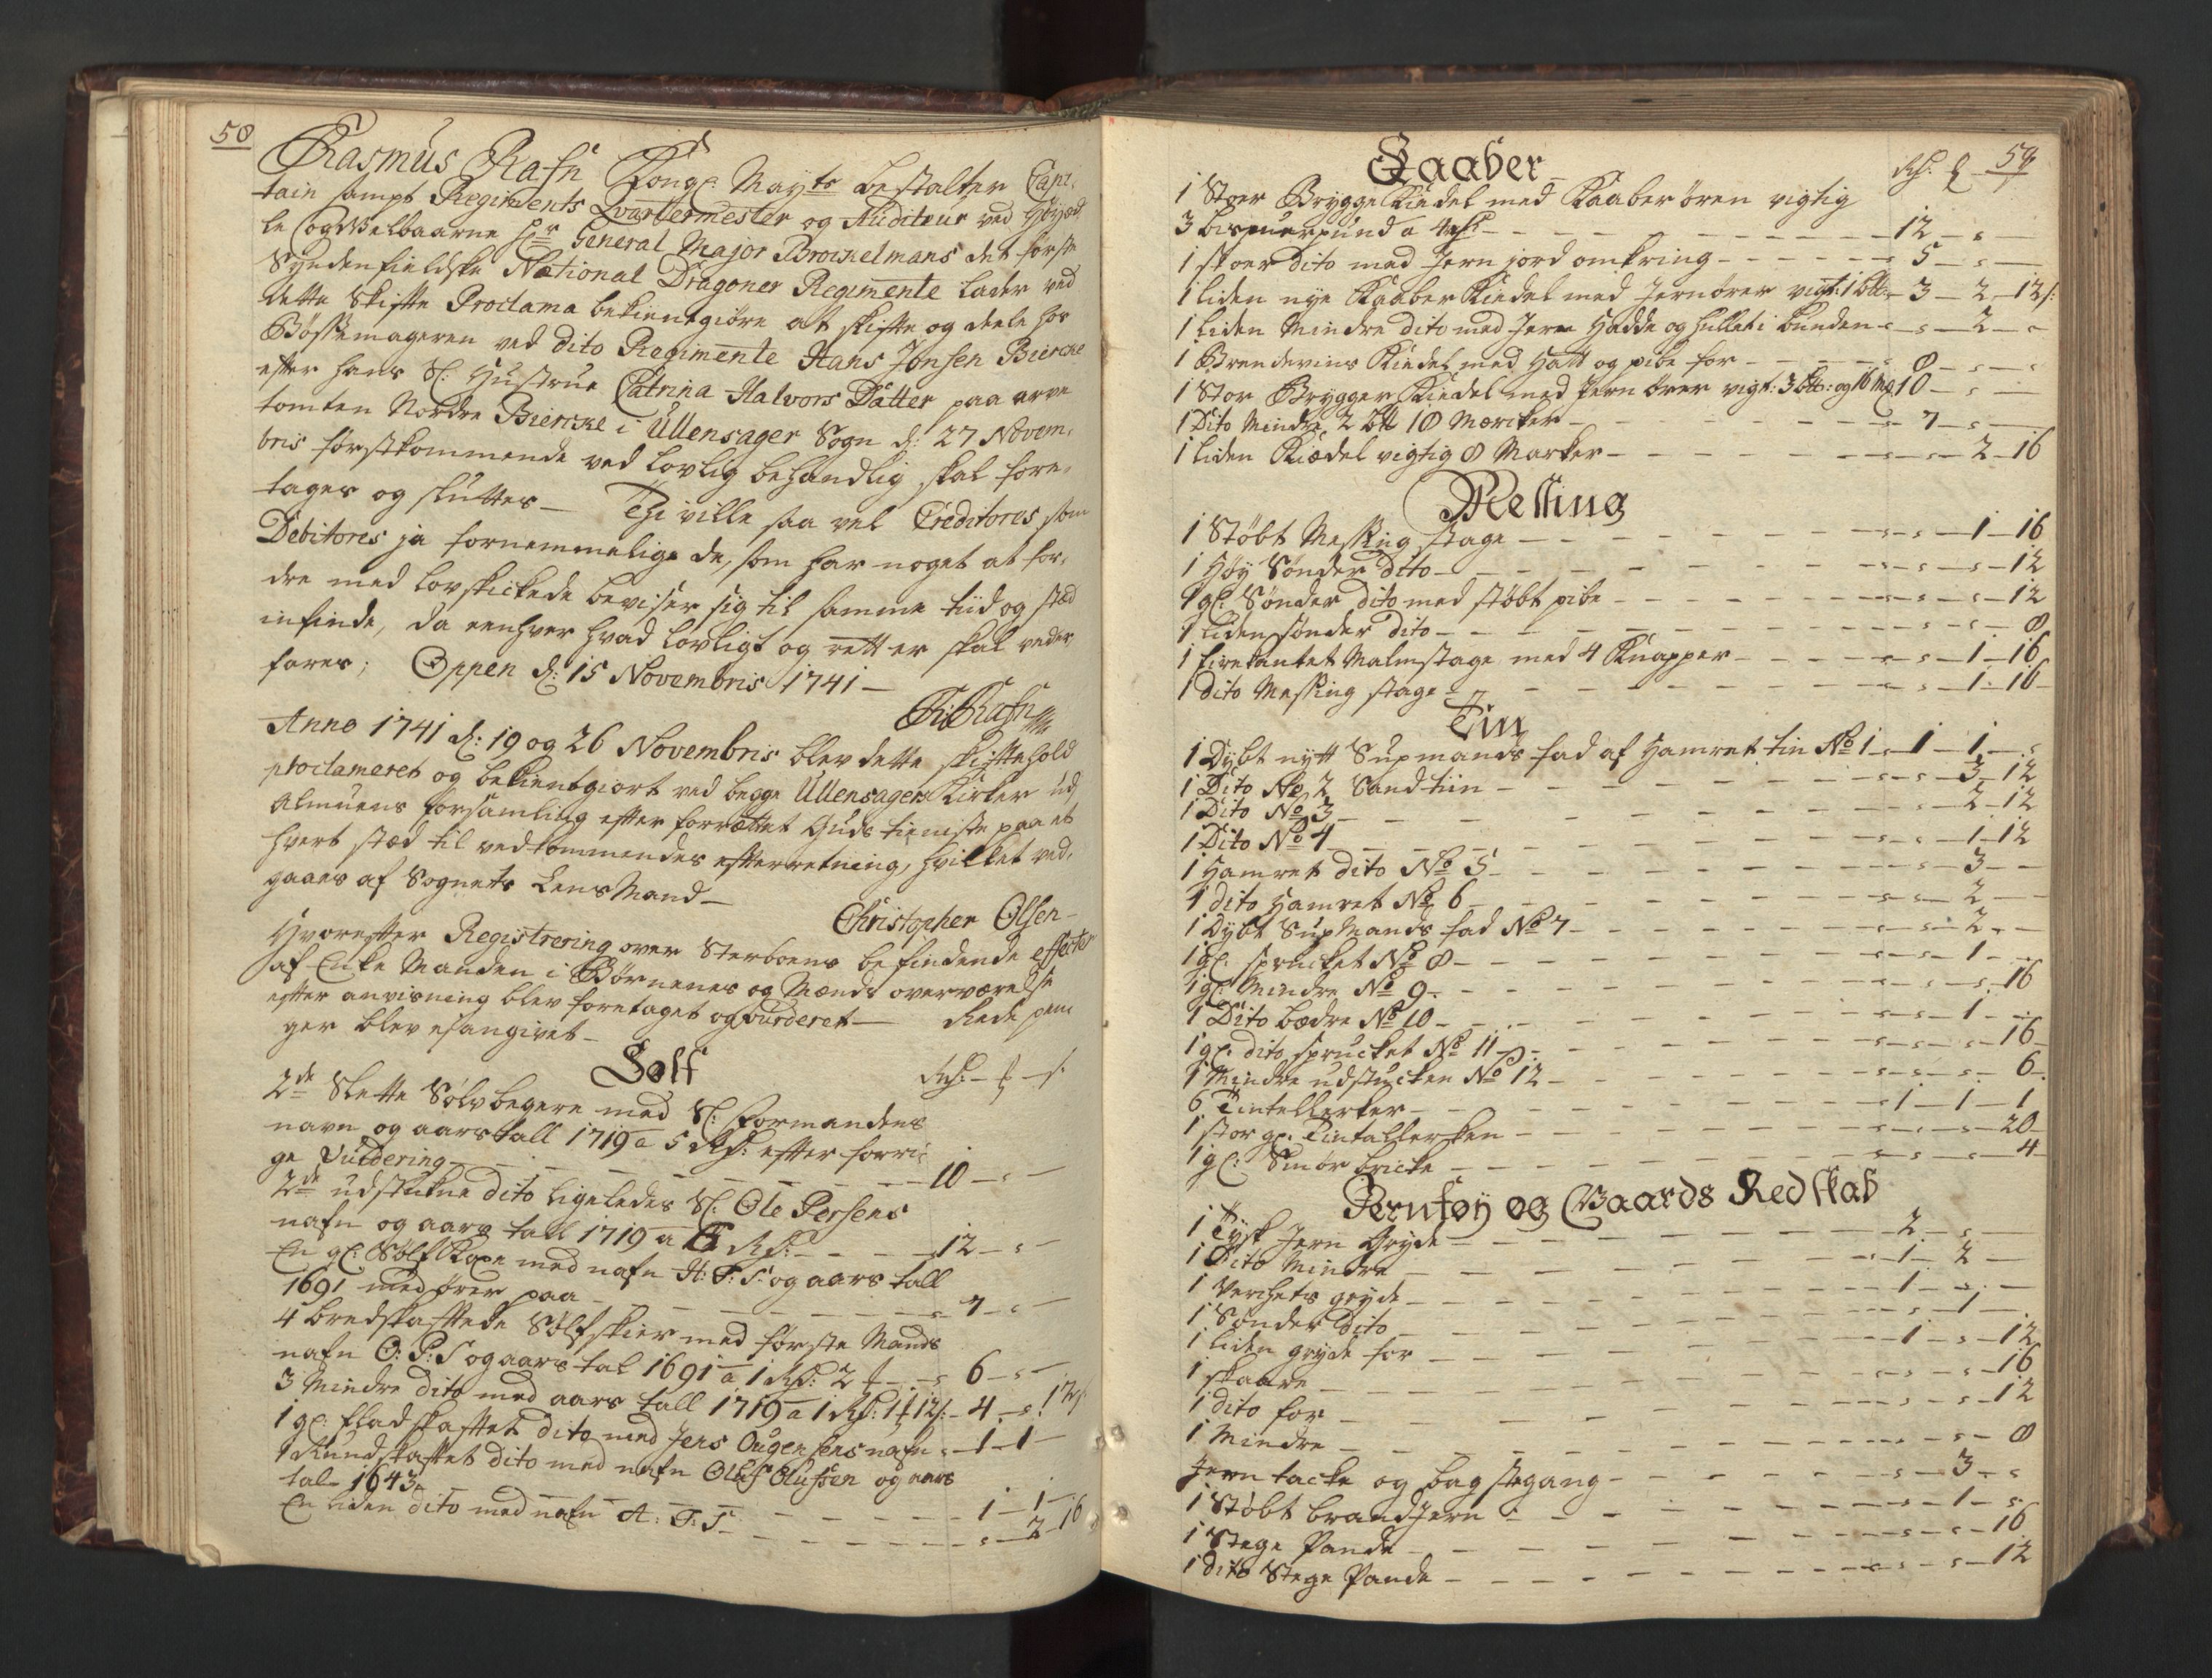 58
Rasmus Rafn Kongl: Mayts bestalter Capi-
tain sampt Regiments Qvartermester og Auditeur ved Høyæd-
le og Welbaarne Hr General Major Brockelmans det første
Syndenfieldske National Dragoner Regimente lader ved
dette Skifte Proclama bekientgiøre at skifte og deele hos
Bøssemageren ved dito Regimente Hans Jonsen Biercke
efter hans Sl: Hustrue Catrina Halvors Datter paa arve
tomten Nordre Biercke i Ullensager Sogn d: 27 Novem-
bris førstkommende ved lovlig behandlig skal fore-
tages og sluttes — Thi ville saa vel Creditores som
Debitores ja fornemmelige de, som har noget at for-
dre med lovskickede beviser sig til samme tiid og stæd
infinde, da eenhver hvad lovligt og rett er skal veder
fares; Oppen d: 15 Novembris 1741 —
R: Rafn
Anno 1741 d: 19 og 26 Novembris blev dette skiftehold
proclameret og bekientgiort ved begge Ullensagers Kirker ud
Almuens forsamling efter forrættet Guds tieniste paa et
hvert stæd til vedkommendes efterretning, hvilket ved-
gaaes af Sognets LensMand —
Christopher Olsen —
Hvorefter Registrering over Sterboens befindende effecter
af Enke Manden i Børnenes og Mænds overværelse
efter anvisning blev foretaget og vurderet — Rede pen
ger blev ej angivet —
Solf
Rdr: — —
2de Slette Sølvbegere med Sl: formandens
navn og aarstall 1719 a 5 Rdr: efter forri-
ge Vurdering — 10 — —
2de udstukne dito ligeledes Sl: Ole Persens
nafn og aars tall 1719 a 6 Rdr: — 12 — —
En gl: Sølf Kope med nafn H: P: S: og aars tall
1691 med ører paa — 7 — —
4 bredskaftede Sølfskier med første Mands
nafn O: P: S og aars tal 1691 a 1 Rdr: 2 — 6 — —
3 Mindre dito med aars tall 1719 a 1 Rdr: 1 12 — 4 — 12
1 gl: flad skaftet dito med Jens nafn — 1 — 1 —
1 Rundskaftet dito med nafn Ole Olufsen og aars
tal 1643 — 1 — 1 —
En liden dito med nafn A: P: S — 2 — 16
59
Kaaber
Rdr:
1 Stoer Brygge Kiedel med Kaaber ören vigtig
3 bismerpund a 4 rdr — 12 —
1 stoer dito med Jern jord omkring — 5 —
1 liden nye Kaaber Kiedel med Jernører vigt: 1 — 3 — 2 — 12
1 liden Mindre dito med Jern Hadde og hullet i bunden — 2 —
1 Brendevins Kiedel med Hatt og pibe for — 8 —
1 Stor Brygger Kiedel med Jern örer vigt: 3 og 16 — 10 —
1 Dito Mindre 2 18 Mærcker — 7 —
1 liden Kiædel vigtig 8 Marker — 2 — 16
Messing
1 Støbt Messing stage — 1 — 16
1 Høy Sønder dito — 12
1 gl: Sønder dito med støbt pibe — 12
1 liden sønder dito — 8
1 firekantet Malmstage med 4 Knapper — 1 — 16
1 dito Messing stage — 1 — 16
Tin
1 Dybt nytt Supmands fad af Hamret tin No 1 — 1 — 1 —
1 Dito No 2 Sandtiin — 3 — 12
1 Dito No 3 — 2 — 12
1 Dito No 4 — 1 — 12
1 Hamret dito No 5 — 3 —
1 dito Hamret No 6 — 2 —
1 Dybt SupMands fad No 7 — 2 —
1 gl: sprucket No 8 — 1 —
1 gl: Mindre No 9 — 16
1 Dito bædre No 10 — 1 —
1 gl: dito sprucket No 11 — 16
1 Mindre udstucken No 12 — 6
6 Tintellerker — 1 — 1 — 1
1 stor gl: Tintallerken — 20
1 gl: Smør bricke — 4
Jerntøy og Gaards Redskab
1 Tysk Jern Gryde — 2 —
1 Dito Mindre — 1 — 2 —
1 Verchets gryde — 1 —
1 Sønder dito — 1 —
1 liden gryde for — 1 — 12
1 skaare — 16
1 dito for — 12
1 Mindre — 8
Jern tacke og bagstegang — 3 —
1 Støbt brandJern — 1 —
1 Stege Pande — 16
1 dito Stege Pande — 12